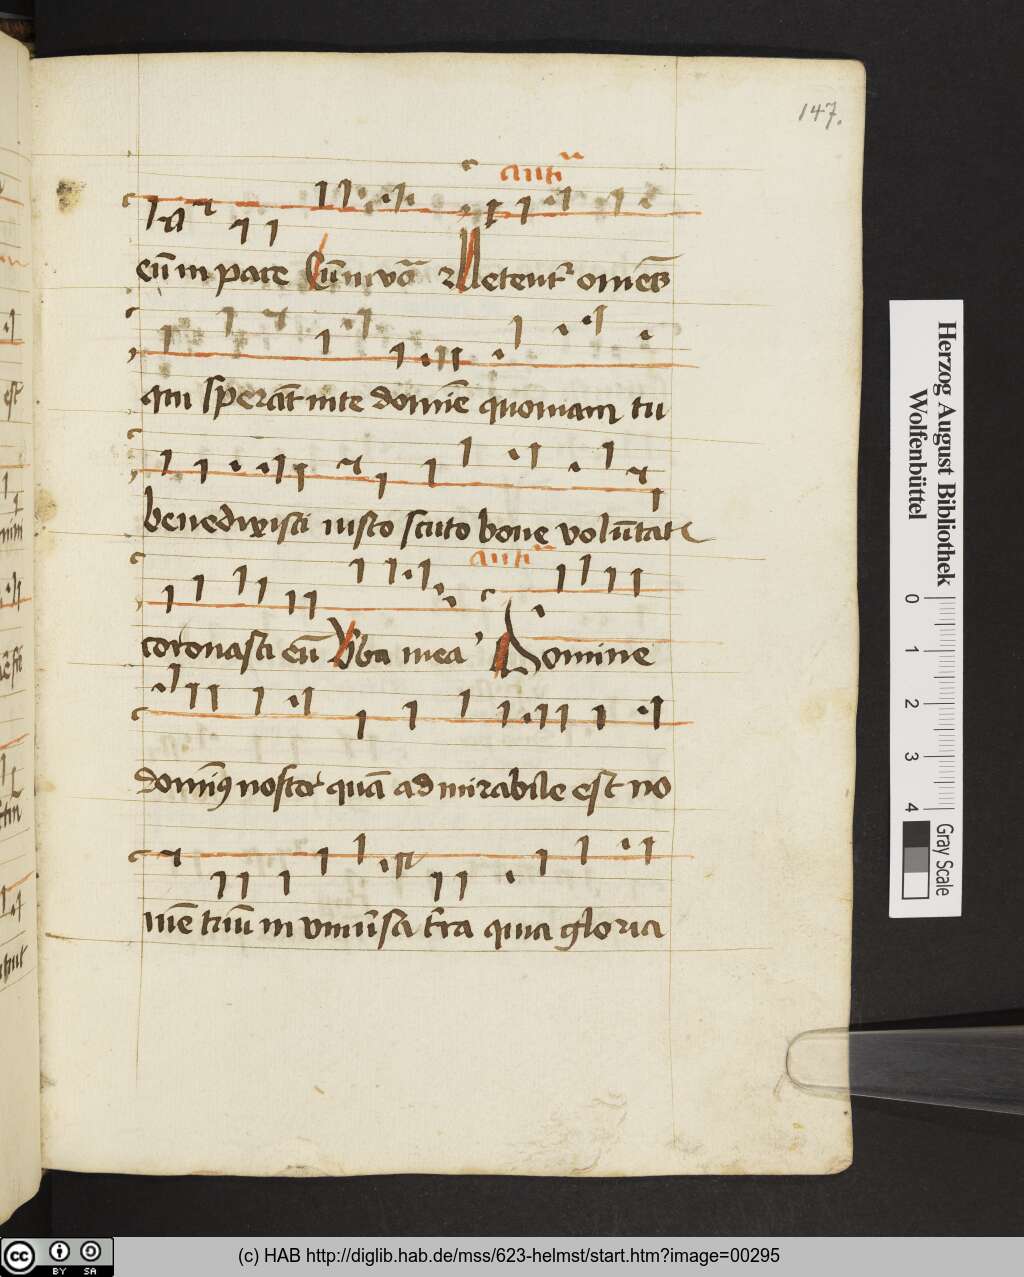 147.
antⁱa
eū in pace Cū invocā 2 Letentʳ omēs
qui sperāt in te domīe quoniam tu
benedixisti iusto scuto bone volūtatꝭ
antⁱa
coronasti eū Vba mea Domine
domin9 noster quā admirabile est no
mē tuū in vniūsa tr̄a quia gloria
est
Herzog August Bibliothek
Wolfenbüttel
0 1 2 3 4
Gray Scale
cc BY SA
(c) HAB http://diglib.hab.de/mss/623-helmst/start.htm?image=00295